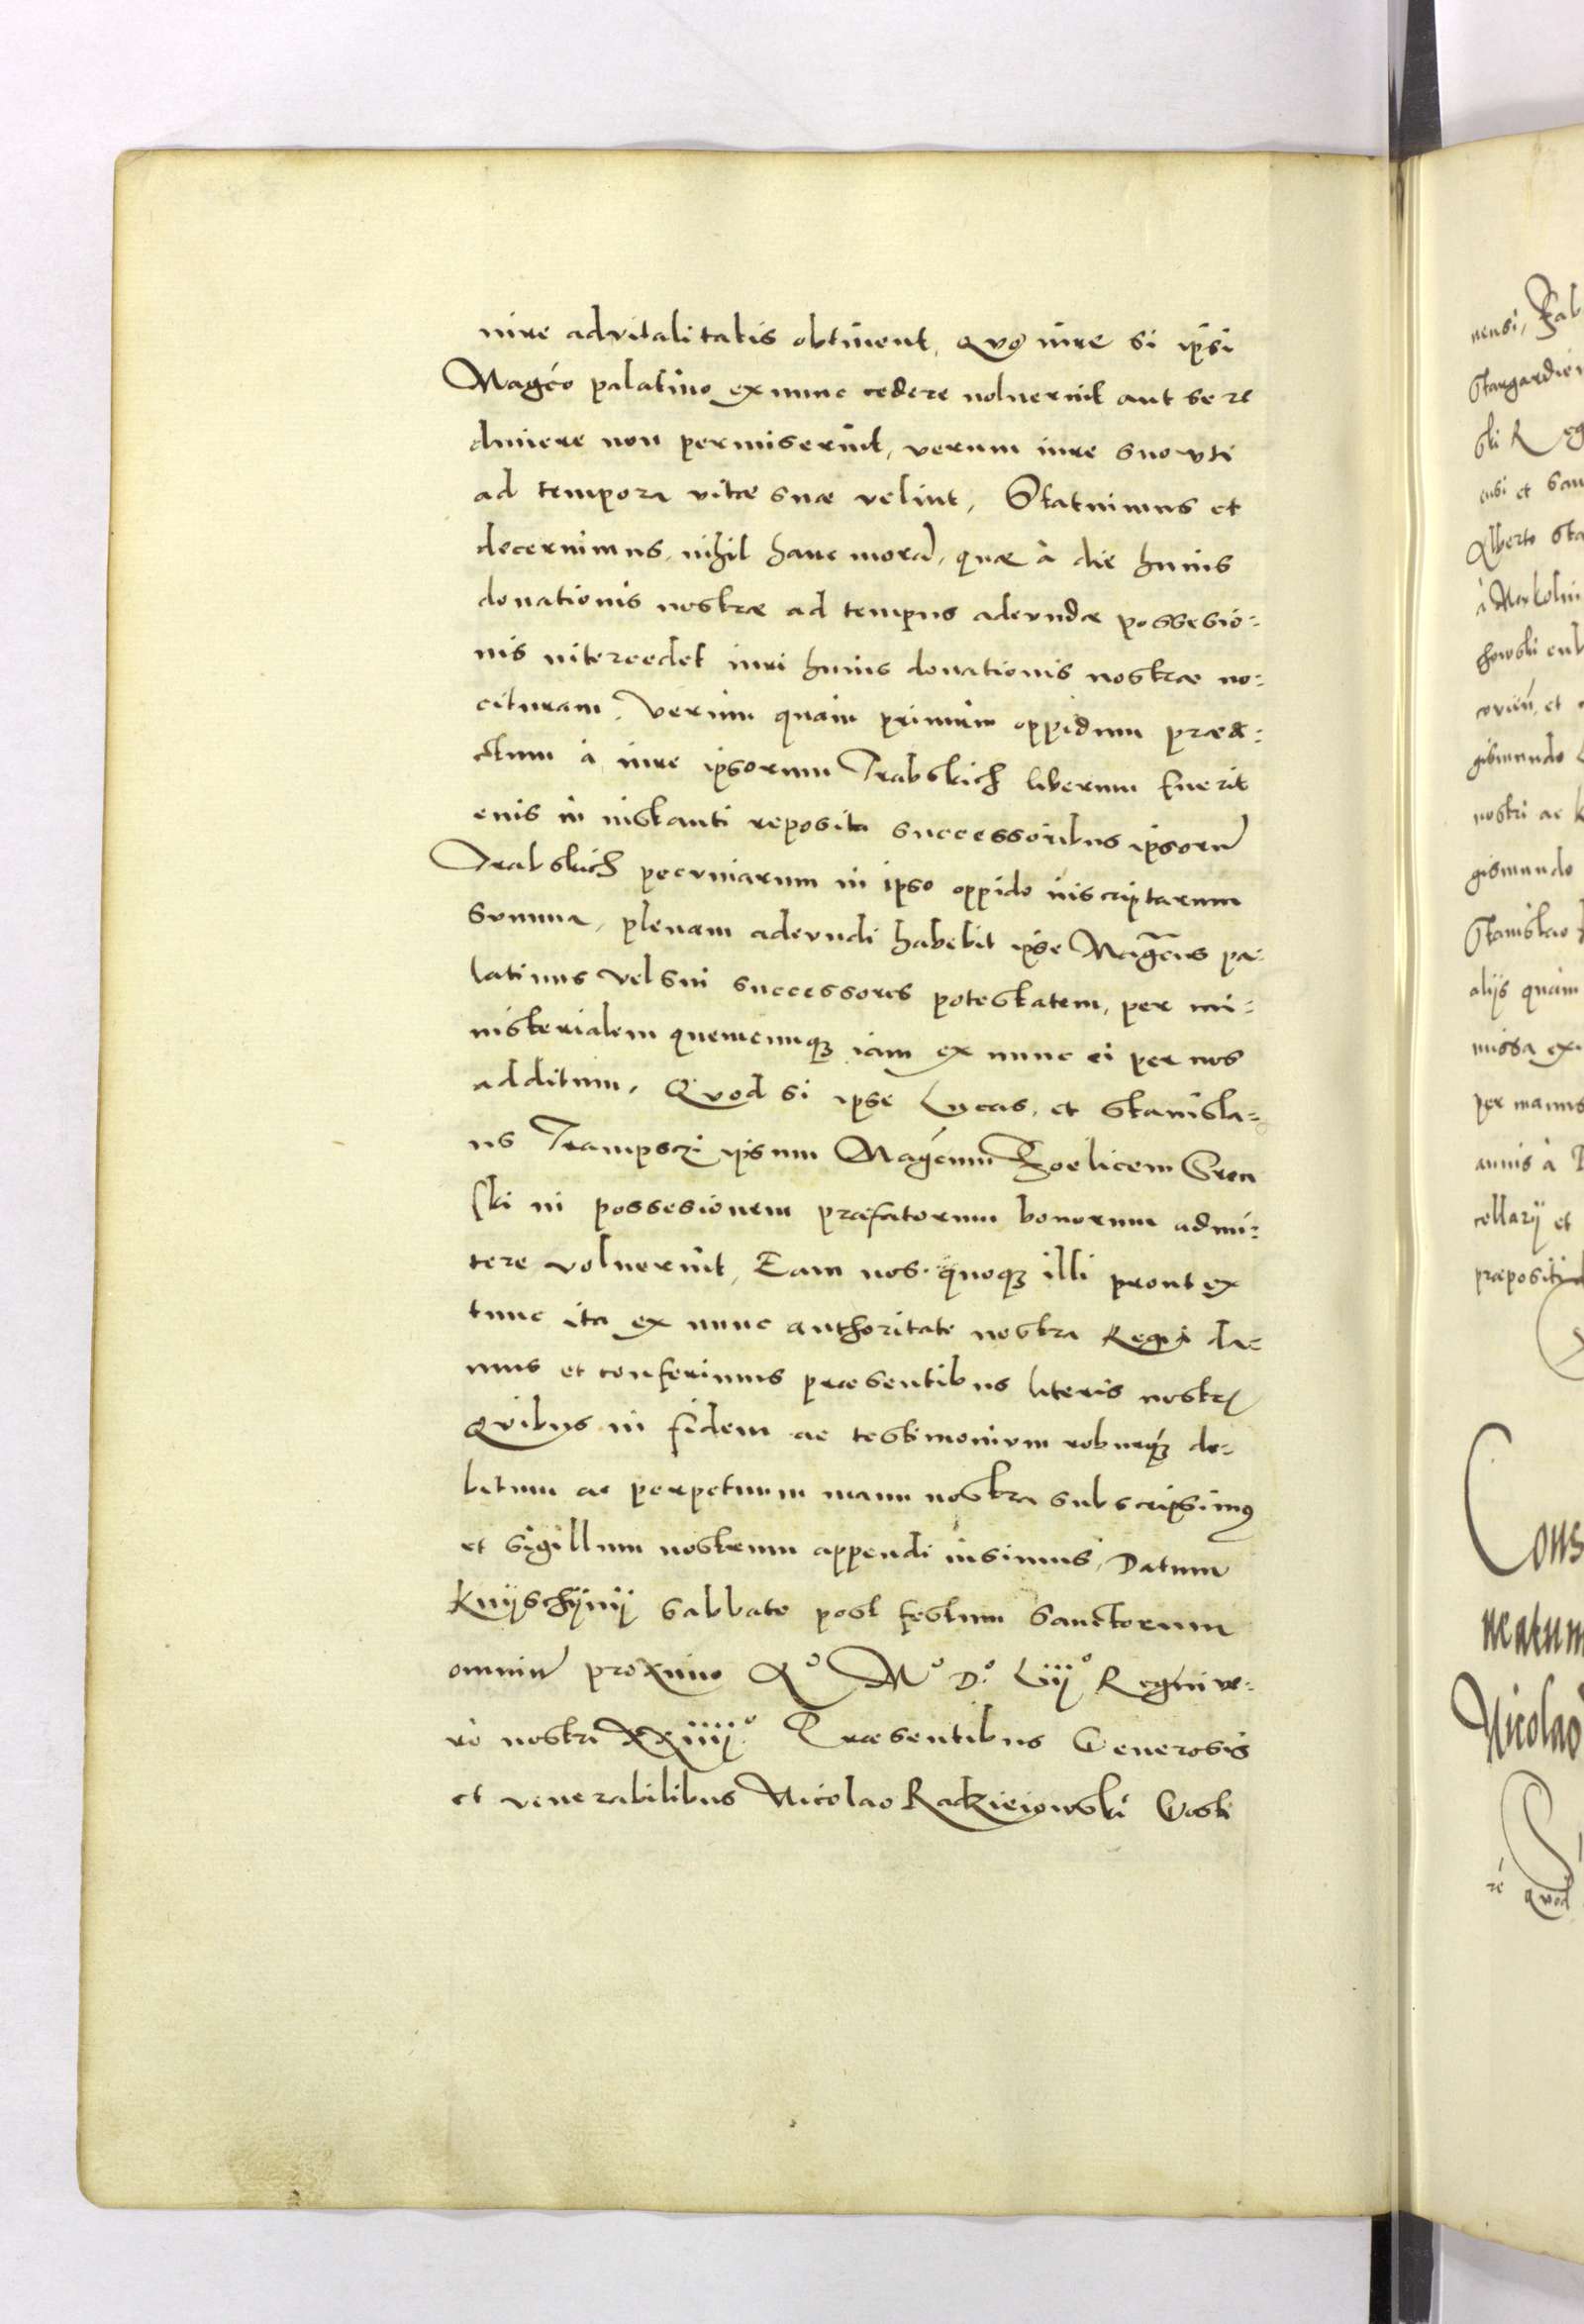 iure advitalitatis obtinent, Quo iure si ipsi
Magco palatino ex nunc cedere noluerint aut se re
dimere non permiserint, verum iure suo uti
ad tempora vitae suae velint, Statuimus et
decernimus, nihil hanc moram, quae à die huius
donationis nostrae ad tempus adeundae possesio:
nis intercedet iuri huius donationis nostrae no:
cituram, Verum quam primum oppidum praedi:
ctum à iure ipsorum Trabskich liberum fuerit
enis in instanti reposita successoribus ipsorum
Trabskich pecuniarum in ipso oppido inscriptarum
summa, plenam adeundi habebit ipse Magcus pa:
latinus vel sui successores potestatem, per mi:
nisterialem quemcunq3 iam ex nunc ei per nos
additum, Quod si ipse Lucas, et Stanisla:
us Trampsczi ipsum Magcum Foelicem Sren
ski in possesionem praefatorum bonorum admi:
tere voluerint, Eam nos quoq3 illi prout ex
tunc ita ex nunc authoritate nostra Regia da:
mus et conferimus praesentibus literis nostris
Quibus in fidem ac testimonium roburq3 de:
bitum ac perpetuum manu nostra subscripsimus
et sigillum nostrum appendi iusimus, Datum
Knijschijnij Sabbato post festum Sanctorum
omnium proximo Aº Mº Dº Liijº Regni ve:
ro nostri XXiiijº Praesentibus Generosis
et venerabilibus Nicolao Radzieiowski Gosti
nensi, Fab
Stargardien
sti Reg
ensi et San
Alberto Sta
gismundo
nostri ac
gismundo
Stanislao
alijs quam
missa ex
per manus
annis à
cellarij et
praepositi
Cons
Nicolao
quod